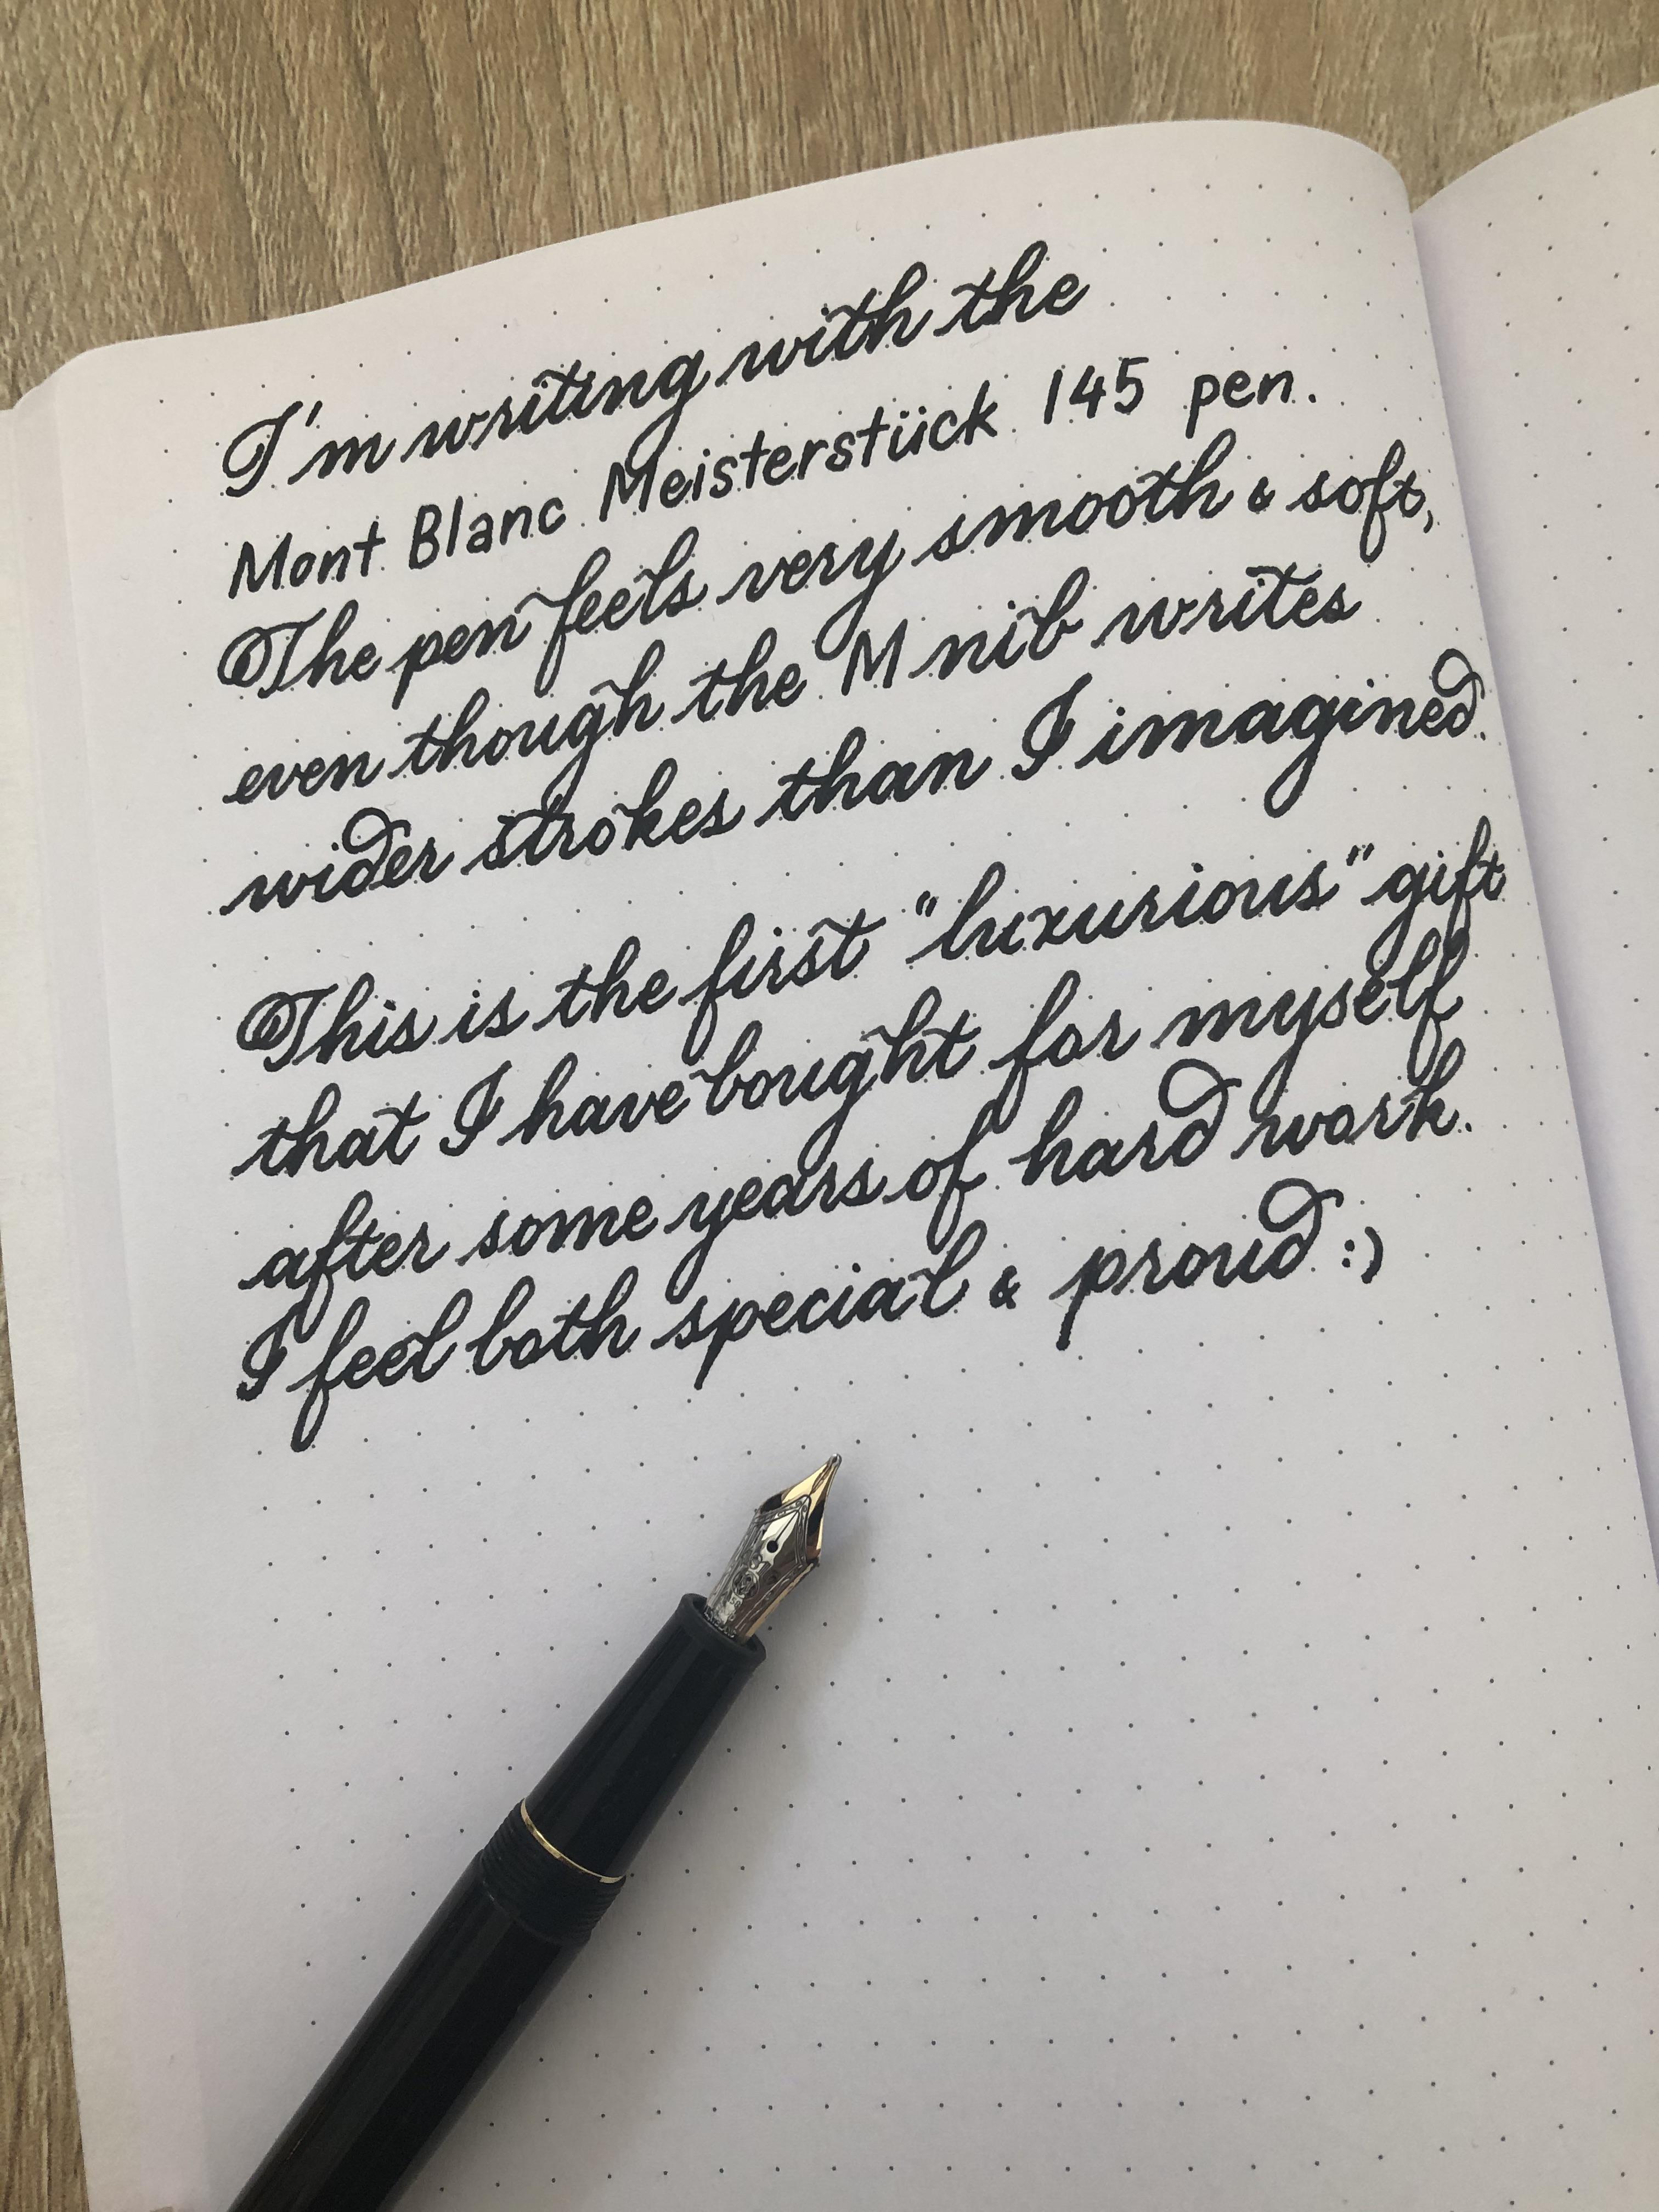 I'm writing with the
Mont Blanc Meisterstück 145 pen.
The pen feels very smooth & soft,
even though the M nib writes
wider strokes than I imagined.
This is the first "luxurious" gift
that I have bought for myself
after some years of hard work.
I feel both special & proud :)